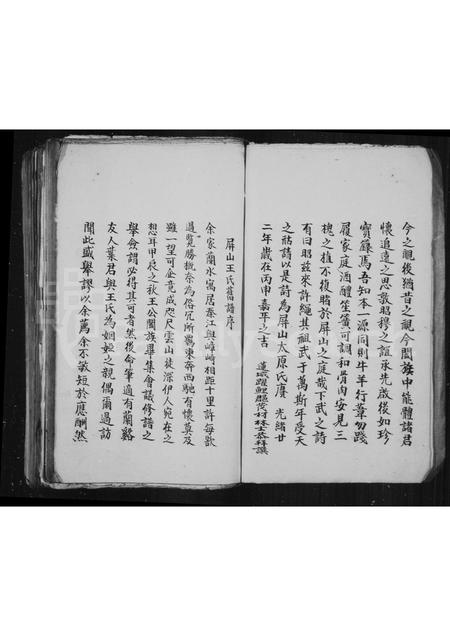 今之視後猶昔之視今闔族中能體諸君
懷追遠之思敦昭穆之誼承先啟後如珍
寶籙焉吾知本一源同則牛羊行葦勿踐
履家庭酒醴笙簧可調和骨肉安見三
槐之植不復睹於屏山之庭哉下武之詩
有曰昭茲來許繩其祖武于萬斯年受天
之祜請以是詩為屏山太原氏賡 光緒廿
二年歲在丙申嘉平之吉
蓮城躍鯉縣茂材林士恭拜撰
屏山王氏舊譜序
余家蘭水寓居秦江與峙相距十里許每歎
遐覽勝概奈為俗冗所羈東奔西馳有懷莫及
雖一望可企竟成咫尺雲山徒深伊人宛在之
想耳甲辰之秋王公闔族畢集會議修譜之
舉僉謂必得其可者然後命筆適有蘭谿
友人葉君與王氏為姻婭之親偶爾過訪
聞此盛舉謬以余薦余不敏短於應酬然